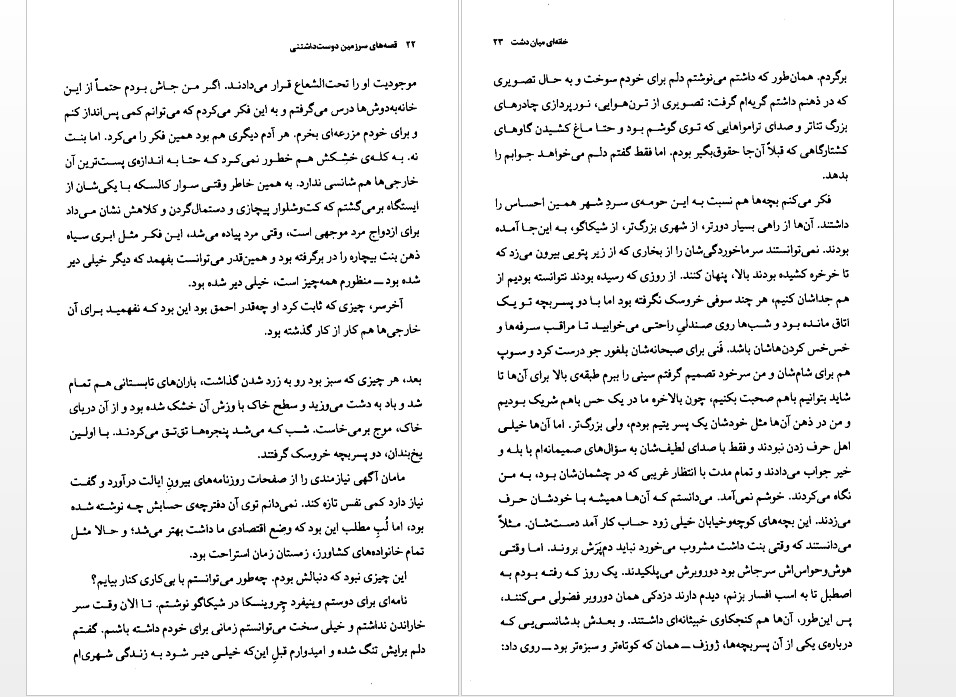 ۲۲ قصه‌های سرزمین دوست‌داشتنی
موجودیت او را تحت‌الشعاع قرار می‌دادند. اگر من جاش بودم حتماً از این
خانه‌به‌دوش‌ها درس می‌گرفتم و به این فکر می‌کردم که می‌توانم کمی پس‌انداز کنم
و برای خودم مزرعه‌ای بخرم. هر آدم دیگری هم بود همین فکر را می‌کرد. اما بنت
نه. به کله‌ی خشکش هم خطور نمی‌کرد که حتا به اندازه‌ی پست‌ترین آن
خارجی‌ها هم شانسی ندارد. به همین خاطر وقتی سوار کالسکه با یکی‌شان از
ایستگاه برمی‌گشتم که کت‌وشلوار پیچازی و دستمال‌گردن و کلاهش نشان می‌داد
برای ازدواج مرد موجهی است، وقتی مرد پیاده می‌شد، این فکر مثل ابری سیاه
ذهن بنت بیچاره را در برگرفته بود و همین‌قدر می‌توانست بفهمد که دیگر خیلی دیر
شده بود ــ منظورم همه‌چیز است، خیلی دیر شده بود.
آخرسر، چیزی که ثابت کرد او چه‌قدر احمق بود این بود که نفهمید برای آن
خارجی‌ها هم کار از کار گذشته بود.
بعد، هر چیزی که سبز بود رو به زرد شدن گذاشت، باران‌های تابستانی هم تمام
شد و باد به دشت می‌وزید و سطح خاک با وزش آن خشک شده بود و از آن دریای
خاک، موج برمی‌خاست. شب که می‌شد پنجره‌ها تق‌تق می‌کردند. با اولین
یخ‌بندان، دو پسربچه خروسک گرفتند.
مامان آگهی نیازمندی را از صفحات روزنامه‌های بیرونِ ایالت درآورد و گفت
نیاز دارد کمی نفس تازه کند. نمی‌دانم توی آن دفترچه‌ی حسابش چه نوشته شده
بود، اما لُبِ مطلب این بود که وضع اقتصادی ما داشت بهتر می‌شد؛ و حالا مثل
تمام خانواده‌های کشاورز، زمستان زمان استراحت بود.
این چیزی نبود که دنبالش بودم. چه‌طور می‌توانستم با بی‌کاری کنار بیایم؟
نامه‌ای برای دوستم وینیفرد چِروینسکا در شیکاگو نوشتم. تا الان وقت سر
خاراندن نداشتم و خیلی سخت می‌توانستم زمانی برای خودم داشته باشم. گفتم
دلم برایش تنگ شده و امیدوارم قبلِ این‌که خیلی دیر شود به زندگی شهری‌ام
خانه‌ای میان دشت ۲۳
برگردم. همان‌طور که داشتم می‌نوشتم دلم برای خودم سوخت و به حال تصویری
که در ذهنم داشتم گریه‌ام گرفت: تصویری از ترن‌هوایی، نورپردازی چادرهای
بزرگ تئاتر و صدای ترامواهایی که توی گوشم بود و حتا ماغ کشیدن گاوهای
کشتارگاهی که قبلاً آن‌جا حقوق‌بگیر بودم. اما فقط گفتم دلم می‌خواهد جوابم را
بدهد.
فکر می‌کنم بچه‌ها هم نسبت به این حومه‌ی سردِ شهر همین احساس را
داشتند. آن‌ها از راهی بسیار دورتر، از شهری بزرگ‌تر، از شیکاگو، به این‌جا آمده
بودند. نمی‌توانستند سرماخوردگی‌شان را از بخاری که از زیر پتویی بیرون می‌زد که
تا خرخره کشیده بودند بالا، پنهان کنند. از روزی که رسیده بودند نتوانسته بودیم از
هم جداشان کنیم، هر چند سوفی خروسک نگرفته بود اما با دو پسربچه تو یک
اتاق مانده بود و شب‌ها روی صندلیِ راحتی می‌خوابید تا مراقب سرفه‌ها و
خس‌خس کردن‌هاشان باشد. فَنی برای صبحانه‌شان بلغور جو درست کرد و سوپ
هم برای شام‌شان و من سرخود تصمیم گرفتم سینی را ببرم طبقه‌ی بالا برای آن‌ها تا
شاید بتوانیم باهم صحبت بکنیم، چون بالاخره ما در یک حس باهم شریک بودیم
و من در ذهن آن‌ها مثل خودشان یک پسر یتیم بودم، ولی بزرگ‌تر. اما آن‌ها خیلی
اهل حرف زدن نبودند و فقط با صدای لطیف‌شان به سؤال‌های صمیمانه‌ام با بله و
خیر جواب می‌دادند و تمام مدت با انتظار غریبی که در چشمان‌شان بود، به من
نگاه می‌کردند. خوشم نمی‌آمد. می‌دانستم که آن‌ها همیشه با خودشان حرف
می‌زدند. این بچه‌های کوچه‌وخیابان خیلی زود حساب کار آمد دست‌شان. مثلاً
می‌دانستند که وقتی بنت داشت مشروب می‌خورد نباید دم‌پَرَش بروند. اما وقتی
هوش‌وحواس‌اش سرجاش بود دوروبرش می‌پلکیدند. یک روز که رفته بودم به
اصطبل تا به اسب افسار بزنم، دیدم دارند دزدکی همان دوروبر فضولی می‌کنند،
پس این‌طور، آن‌ها هم کنجکاوی خبیثانه‌ای داشتند. و بعدش بدشانسی‌یی که
درباره‌ی یکی از آن پسربچه‌ها، ژوزف ــ همان که کوتاه‌تر و سبزه‌تر بود ــ روی داد: